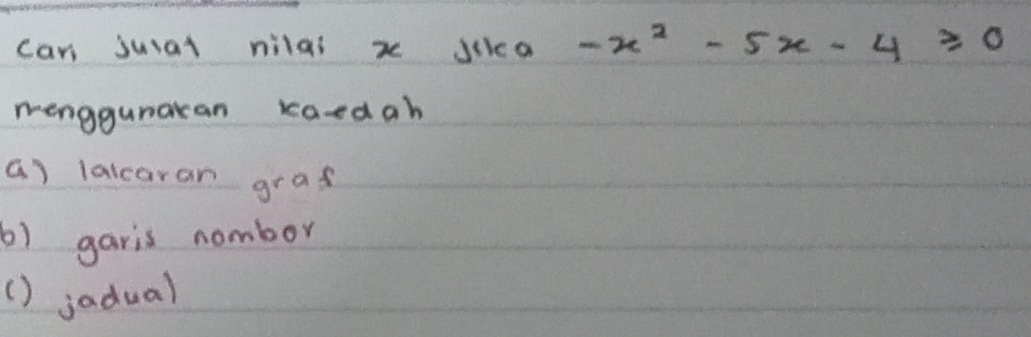 Cari julat nilai x jika -x² - 5x - 4 ≥ 0
menggunakan kaedah
a) lakaran graf
b) garis nombor
c) jadual